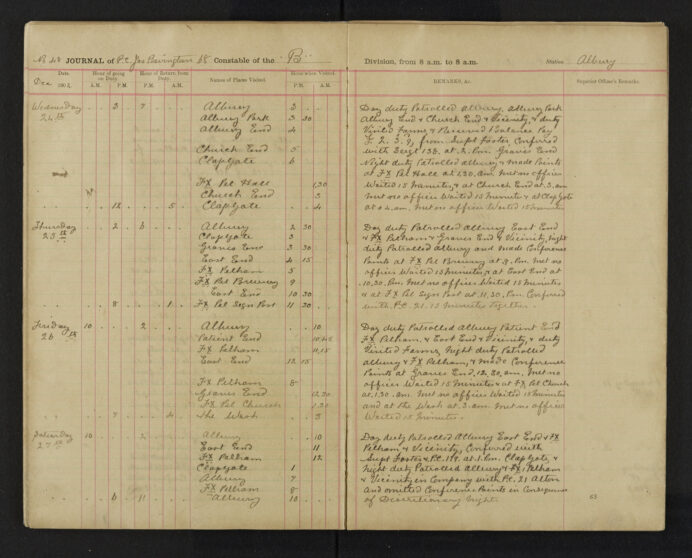 No 48 JOURNAL of P.C. Jas Pavington 58 Constable of the "B"
Division, from 8 a.m. to 8 a.m. Station Albury
Date. Hour of going on Duty. Hour of Return from Duty. Names of Places Visited. Hour when Visited. REMARKS, &c. Superior Officer's Remarks.
Dec 190 A.M. P.M. P.M. A.M. P.M. A.M.
Wednesday 3 7 Albury 3
24th Albury Park 3 30
Albury End 4
Church End 5
Clapgate 6
Fx Pel Hall 1.30
Church End 3
12 5 Clapgate 4
Day duty Patrolled Albury, Albury Park
Albury End & Church End & Vicinity, & duty
Visited Farms & Received Balance Pay
from Supt Foster Conferred
with Sergt 135. at 2. P.m. Graves End
Night duty Patrolled Albury & Made Points
at Fx Pel Hall at 1.30. am. Met no officer
Waited 15 Minutes, & at Church End at 3. am
Met no officer Waited 15 Minutes & at Clapgate
at 4. am. Met no officer Waited 15 minutes
Thursday 2 6 Albury 2 30
25th Clapgate 3
Graves End 3 30
East End 4 15
Fx Pelham 5
Fx Pel Brewery 9
East End 10 30
8 1 Fx Pel Sign Post 11 30
Day duty Patrolled Albury East End
& Fx Pelham & Graves End & Vicinity, Night
duty Patrolled Albury and Made Conference
Points at Fx Pel Brewery at 9. P.m. Met no
officer Waited 15 Minutes, & at East End at
10.30, Pm. Met no officer Waited 15 Minutes
& at Fx Pel Sign Post at 11.30, Pm. Conferred
with P.C. 21. 15 Minutes Together.
Friday 10 2 Albury 10
26th Patient End 10.45
Fx Pelham 11.15
East End 12 15
Fx Pelham 8
Graves End 12.30
Fx Pel Church 1.30
7 4 The Wash 3
Day duty Patrolled Albury Patient End
Fx Pelham & East End & Vicinity, & duty
Visited Farms, Night duty Patrolled
Albury & Fx Pelham, & Made Conference
Points at Graves End, 12.30, am. Met no
officer Waited 15 Minutes & at Fx Pel Church
at, 1.30. am. Met no officer Waited 15 Minutes
and at the Wash at 3. am Met no officer
Waited 15 Minutes.
Saturday 10 2 Albury 10
27th East End 11
Fx Pelham 12
Clapgate 1
Albury 7
Fx Pelham 8
6 11 Albury 10
Day duty Patrolled Albury East End & Fx
Pelham & Vicinity, Conferred with
Supt Foster & P.C. 179. at 1. Pm. Clapgate, &
Night duty Patrolled Albury & Fx Pelham
& Vicinity in Company with P.C. 21 Alton
and omitted Conference Points in Consequence
of Discretionary Night.
63